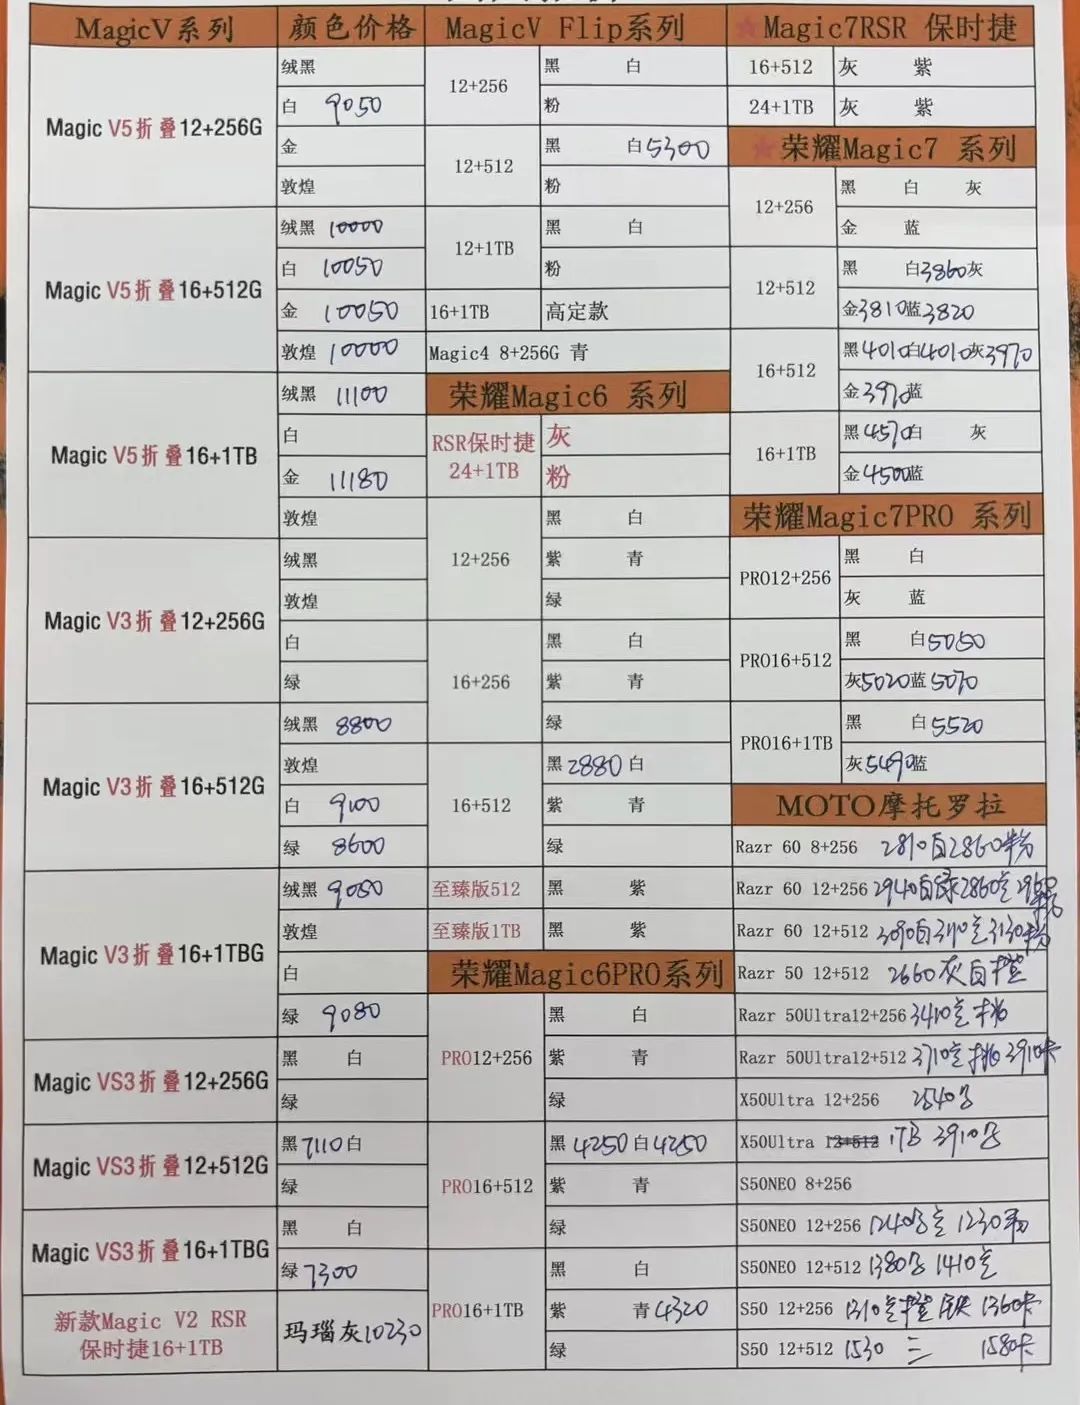 MagicV系列
颜色价格
Magic V5折叠12+256G
绒黑
白 9050
金
敦煌
Magic V5折叠16+512G
绒黑 10000
白 10050
金 10050
敦煌 10000
Magic V5折叠16+1TB
绒黑 11100
白
金 11180
敦煌
Magic V3折叠12+256G
绒黑
敦煌
白
绿
Magic V3折叠16+512G
绒黑 8800
敦煌
白 9100
绿 8600
Magic V3折叠16+1TBG
绒黑 9050
敦煌
白
绿 9080
Magic VS3折叠12+256G
黑 白
绿
Magic VS3折叠12+512G
黑7110白
绿
Magic VS3折叠16+1TBG
黑 白
绿7300
新款Magic V2 RSR
保时捷16+1TB
玛瑙灰10230
MagicV Flip系列
12+256
黑 白
粉
12+512
黑 白5300
粉
12+1TB
黑 白
粉
16+1TB
高定款
Magic4 8+256G 青
荣耀Magic6 系列
RSR保时捷
24+1TB
灰
粉
12+256
黑 白
紫 青
绿
16+256
黑 白
紫 青
绿
16+512
黑2880白
紫 青
绿
至臻版512
黑 紫
至臻版1TB
黑 紫
荣耀Magic6PRO系列
PRO12+256
黑 白
紫 青
绿
PRO16+512
黑4250白4250
紫 青
绿
PRO16+1TB
黑 白
紫 青4320
绿
Magic7RSR 保时捷
16+512
灰 紫
24+1TB
灰 紫
荣耀Magic7 系列
12+256
黑 白 灰
金 蓝
12+512
黑 白3860灰
金3810蓝3820
16+512
黑4010白4010灰3970
金3970蓝
16+1TB
黑4570白 灰
金4500蓝
荣耀Magic7PRO 系列
PRO12+256
黑 白
灰 蓝
PRO16+512
黑 白5050
灰5020蓝5070
PRO16+1TB
黑 白5520
灰5490蓝
MOTO摩托罗拉
Razr 60 8+256 2810白2860粉
Razr 60 12+256 2940白绿2860
Razr 60 12+512 3090白
Razr 50 12+512 2660灰白橙
Razr 50Ultra12+256 3410
Razr 50Ultra12+512 3710
X50Ultra 12+256 2540
X50Ultra 12+512 1TB 3910
S50NEO 8+256
S50NEO 12+256 1240 1230
S50NEO 12+512 1380 1410
S50 12+256 1310 1360
S50 12+512 1530 三 1580